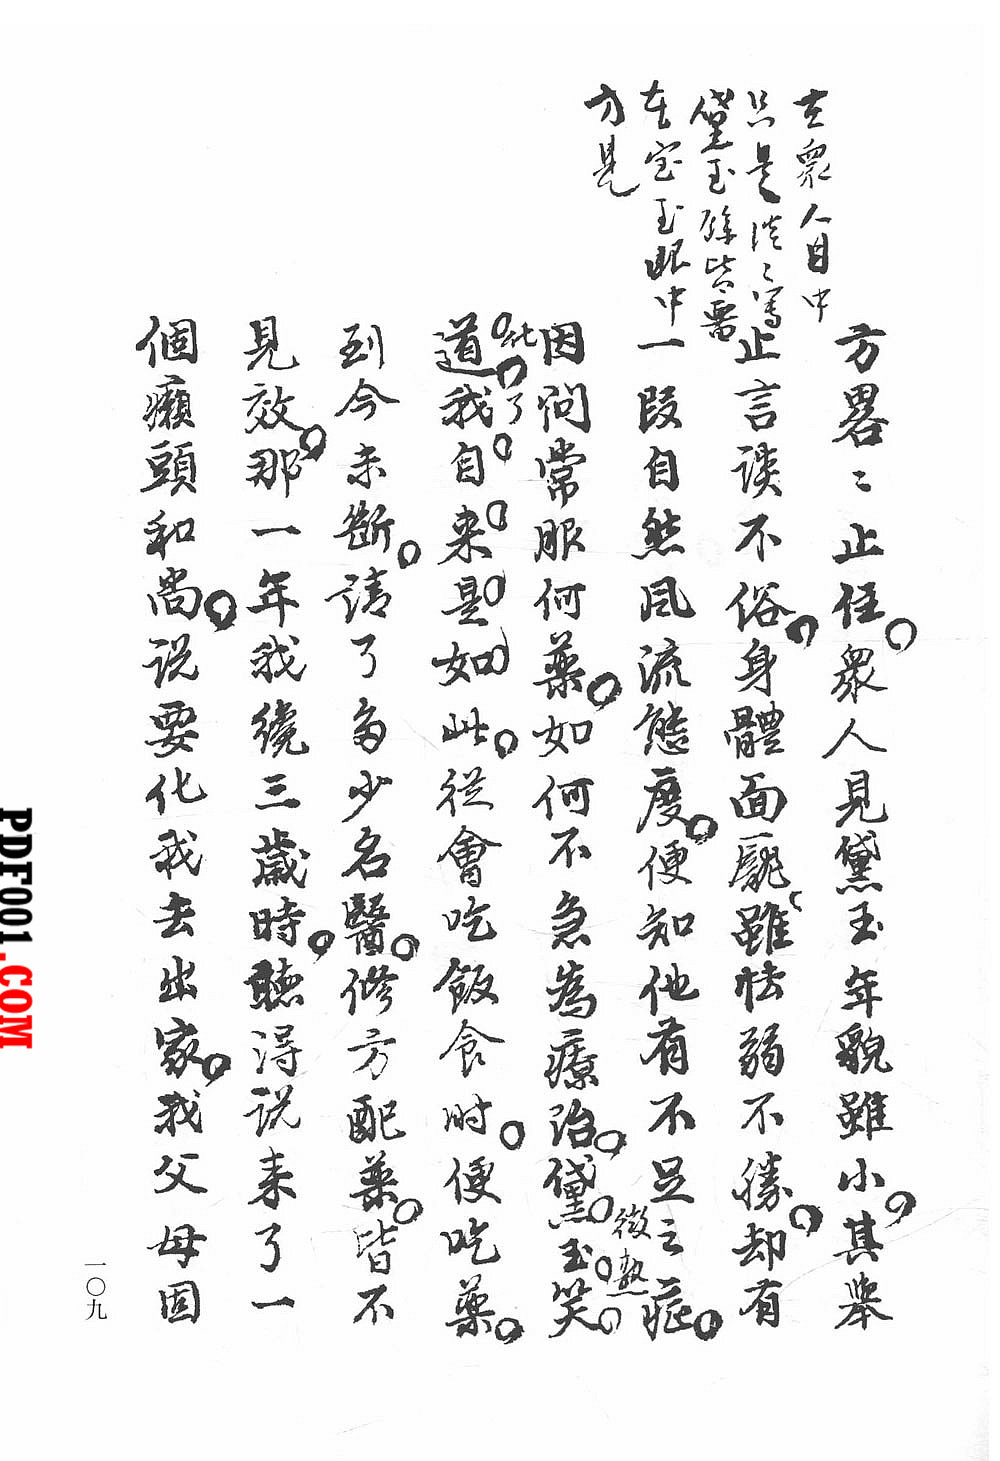 在衆人目中
只是淡〻寫
黛玉綠此需
在宝玉眼中
方是
方畧〻止住衆人見黛玉年貌雖小其舉
止言談不俗身體面龐雖怯弱不勝却有
一段自然風流態度便知他有不足之症
微熱
因问常服何薬如何不急為療治黛玉笑
了
道我自来是如此從會吃飯食时便吃薬
到今未斷請了多少名醫修方配薬皆不
見效那一年我纔三歲時聽得说来了一
個癩頭和尚说要化我去出家我父母固
一〇九
PDF001.COM